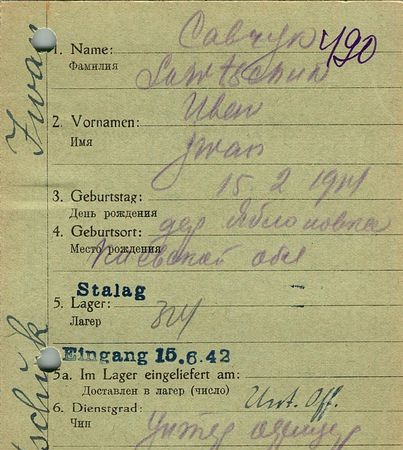 Савчук 490
1. Name:
Фамилия Sawtschuk
Иван
2. Vornamen:
Имя Iwan
15. 2 19
3. Geburtstag:
День рождения
4. Geburtsort: дер Яблоновка
Место рождения Киевской обл
Stalag
5. Lager:
Лагер
Eingang 15.6.42
5a. Im Lager eingeliefert am:
Доставлен в лагер (число)
6. Dienstgrad: Unt. Off.
Чин Унтер офицер
Iwan
tschuk